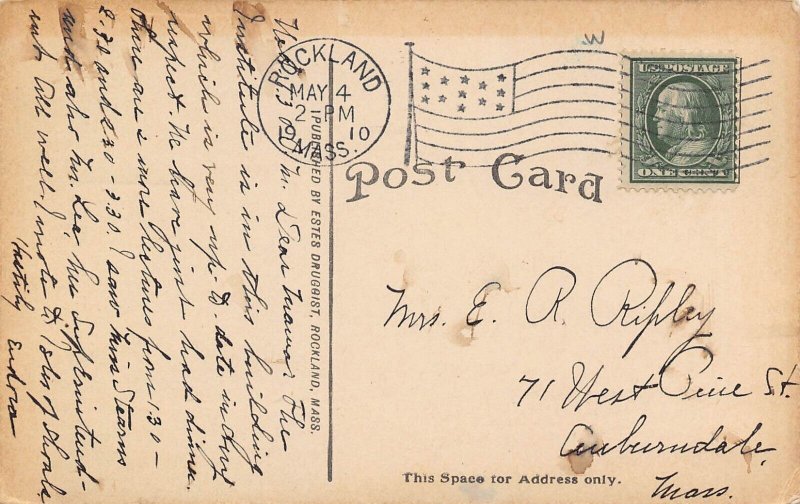 Wed. 1.30 P.M. Dear Mamma: The
Institute is in this building
which is very up-to date in every
respect. We have just had dinner.
There are 2 more lectures from 1.30 -
2.30 and 2.30 - 3.30. I saw Miss Stearns
and also Mr. Lee, her Superintend-
ent. All well. I wrote to Isles of Shoals
Hastily Endora
ROCKLAND
MAY 4
2-PM
19 10
MASS.
PUBLISHED BY ESTES DRUGGIST, ROCKLAND, MASS.
W
U.S. POSTAGE
ONE CENT
Post Card
Mrs. E. R. Ripley
71 West Pine St.
Auburndale,
Mass
This Space for Address only.